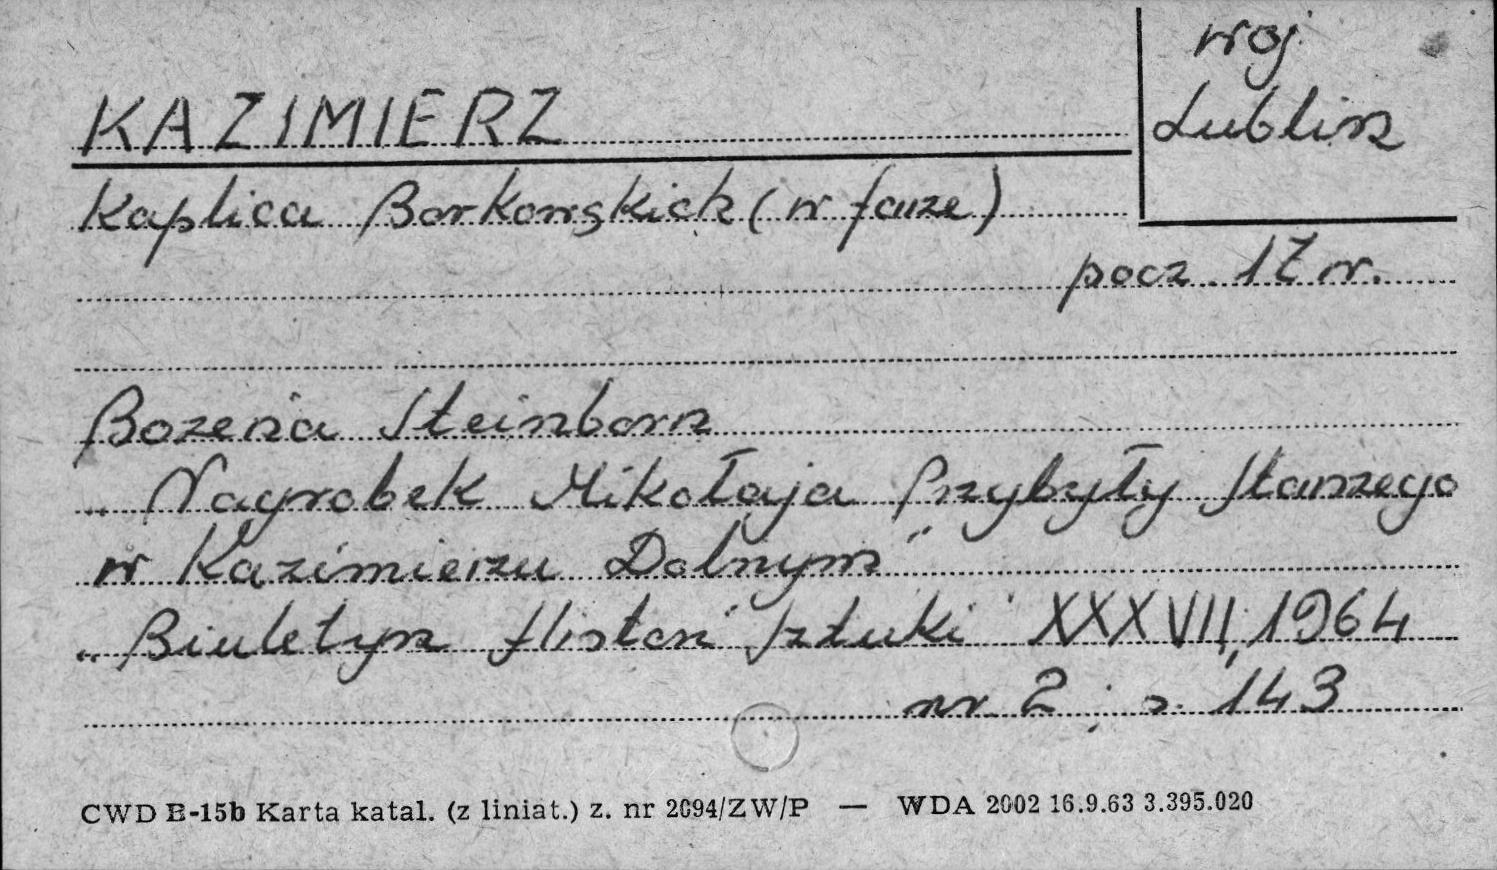 woj
Lublin
KAZIMIERZ
Kaplica Borkowskich (w farze)
pocz. 17 w.
Bożena Steinborn
„Nagrobek Mikołaja Przybyły Starszego
w Kazimierzu Dolnym"
„Biuletyn Historii Sztuki" XXXVII, 1964
nr 2 ; s. 143
CWD E-15b Karta katal. (z liniat.) z. nr 2094/ZW/P — WDA 2002 16.9.63 3.395.020